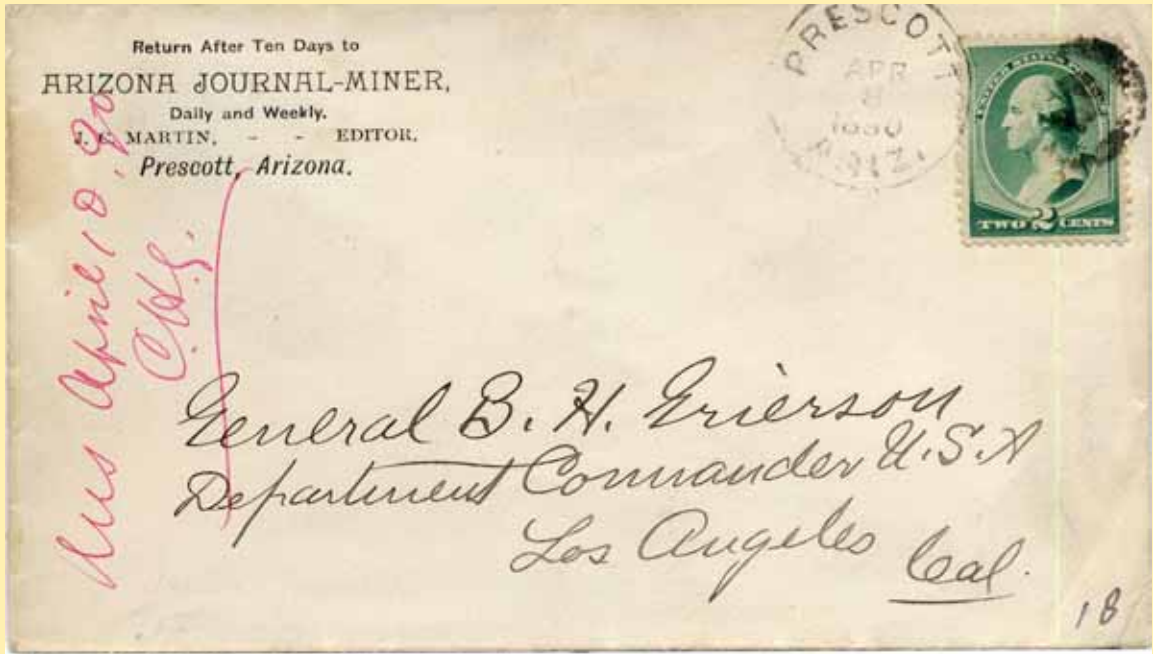 Return After Ten Days to
ARIZONA JOURNAL-MINER,
Daily and Weekly.
J. C. MARTIN, - - EDITOR.
Prescott, Arizona.
PRESCOTT
APR
8
ARIZ.
UNITED STATES
TWO 2 CENTS
Ans April 10, 90
C.H.G.
General B. H. Grierson
Department Commander U.S.A
Los Angeles Cal.
18